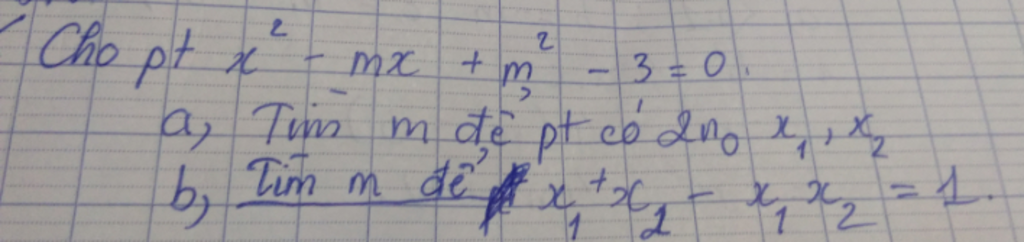 Cho pt x² - mx + m² - 3 = 0.
a, Tìm m để pt có 2 n₀ x₁, x₂
b, Tìm m để x₁ + x₂ - x₁ x₂ = 1.